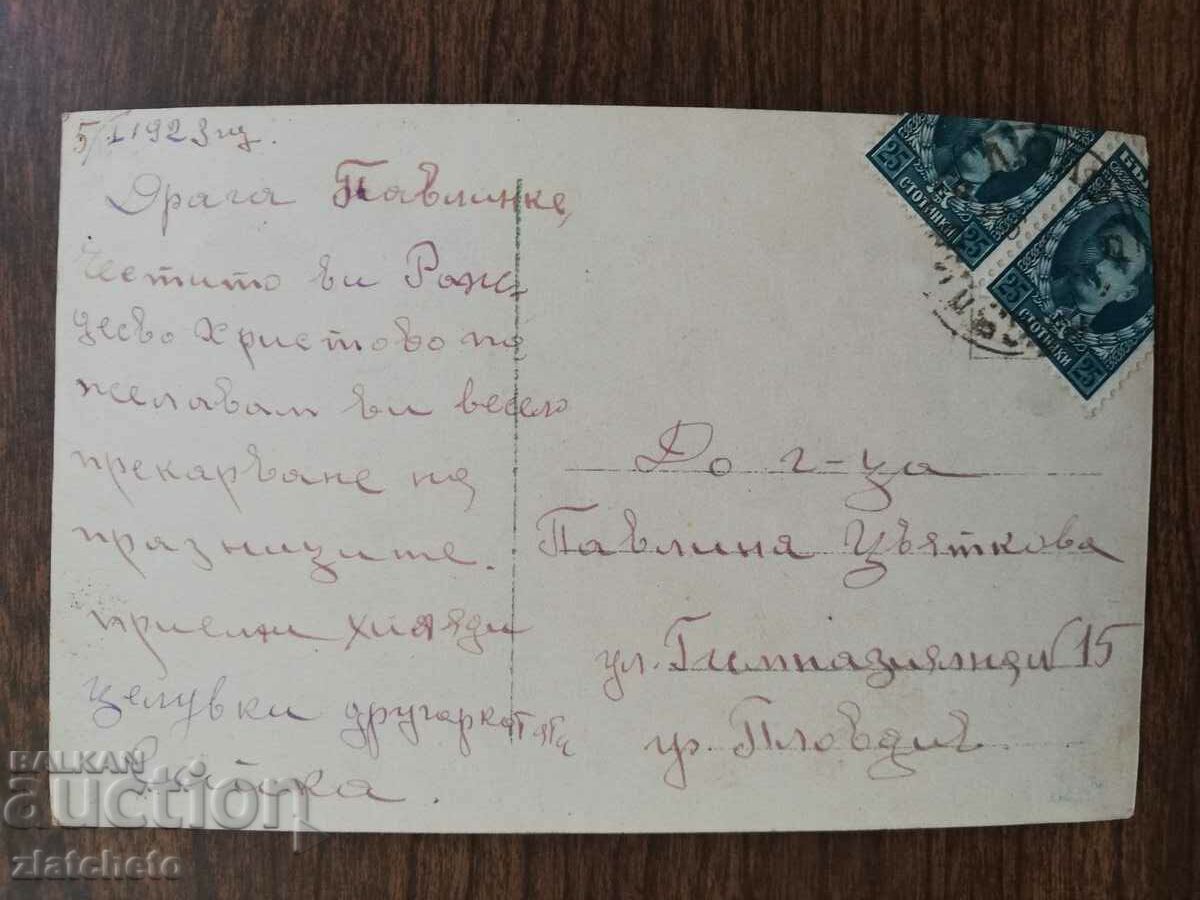 5/I 1923 год.
Драга Павлинке,
Честито ви Рож
десво Христово по
желавам ви весело
прекарване на
празниците.
приеми хиляди
целувки другарката
До г-ца
Павлина Цвяткова
ул. Гимназиянди 15
гр. Пловдив
25 СТОТИНКИ 25
25 СТОТИНКИ 25
BALKAN
auction
zlatcheto